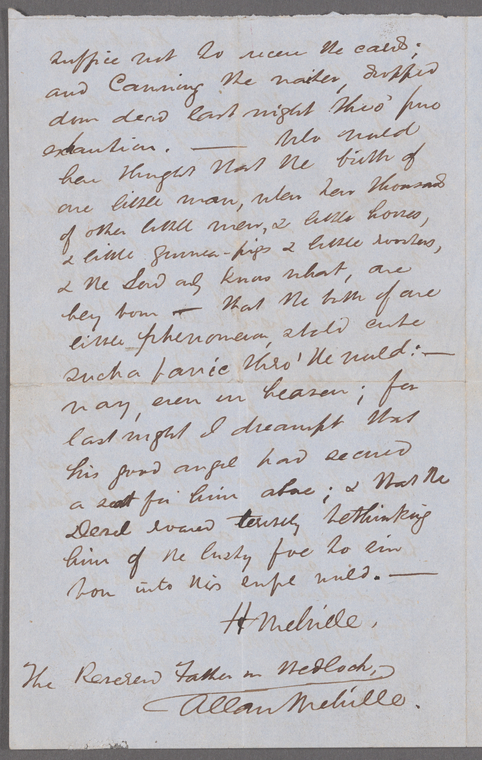 suffice not to receive the cards;
and Canning the waiter, dropped
down dead last night thro' pure
exhaustion. — Who would
have thought that the birth of
one little man, when ten thousand
of other little men, & little horses,
& little guinea-pigs & little roosters,
& the Lord only knows what, are
being born — that the birth of one
little phenomenon, should create
such a panic thro' the world: —
nay, even in heaven; for
last night I dreampt that
his good angel had secured
a seat for him above; & that the
Devel roared terribly bethinking
him of the lusty foe to sin
born into this sinful world. —
H Melville.
The Reverend Father in Wedlock,
Allan Melville.